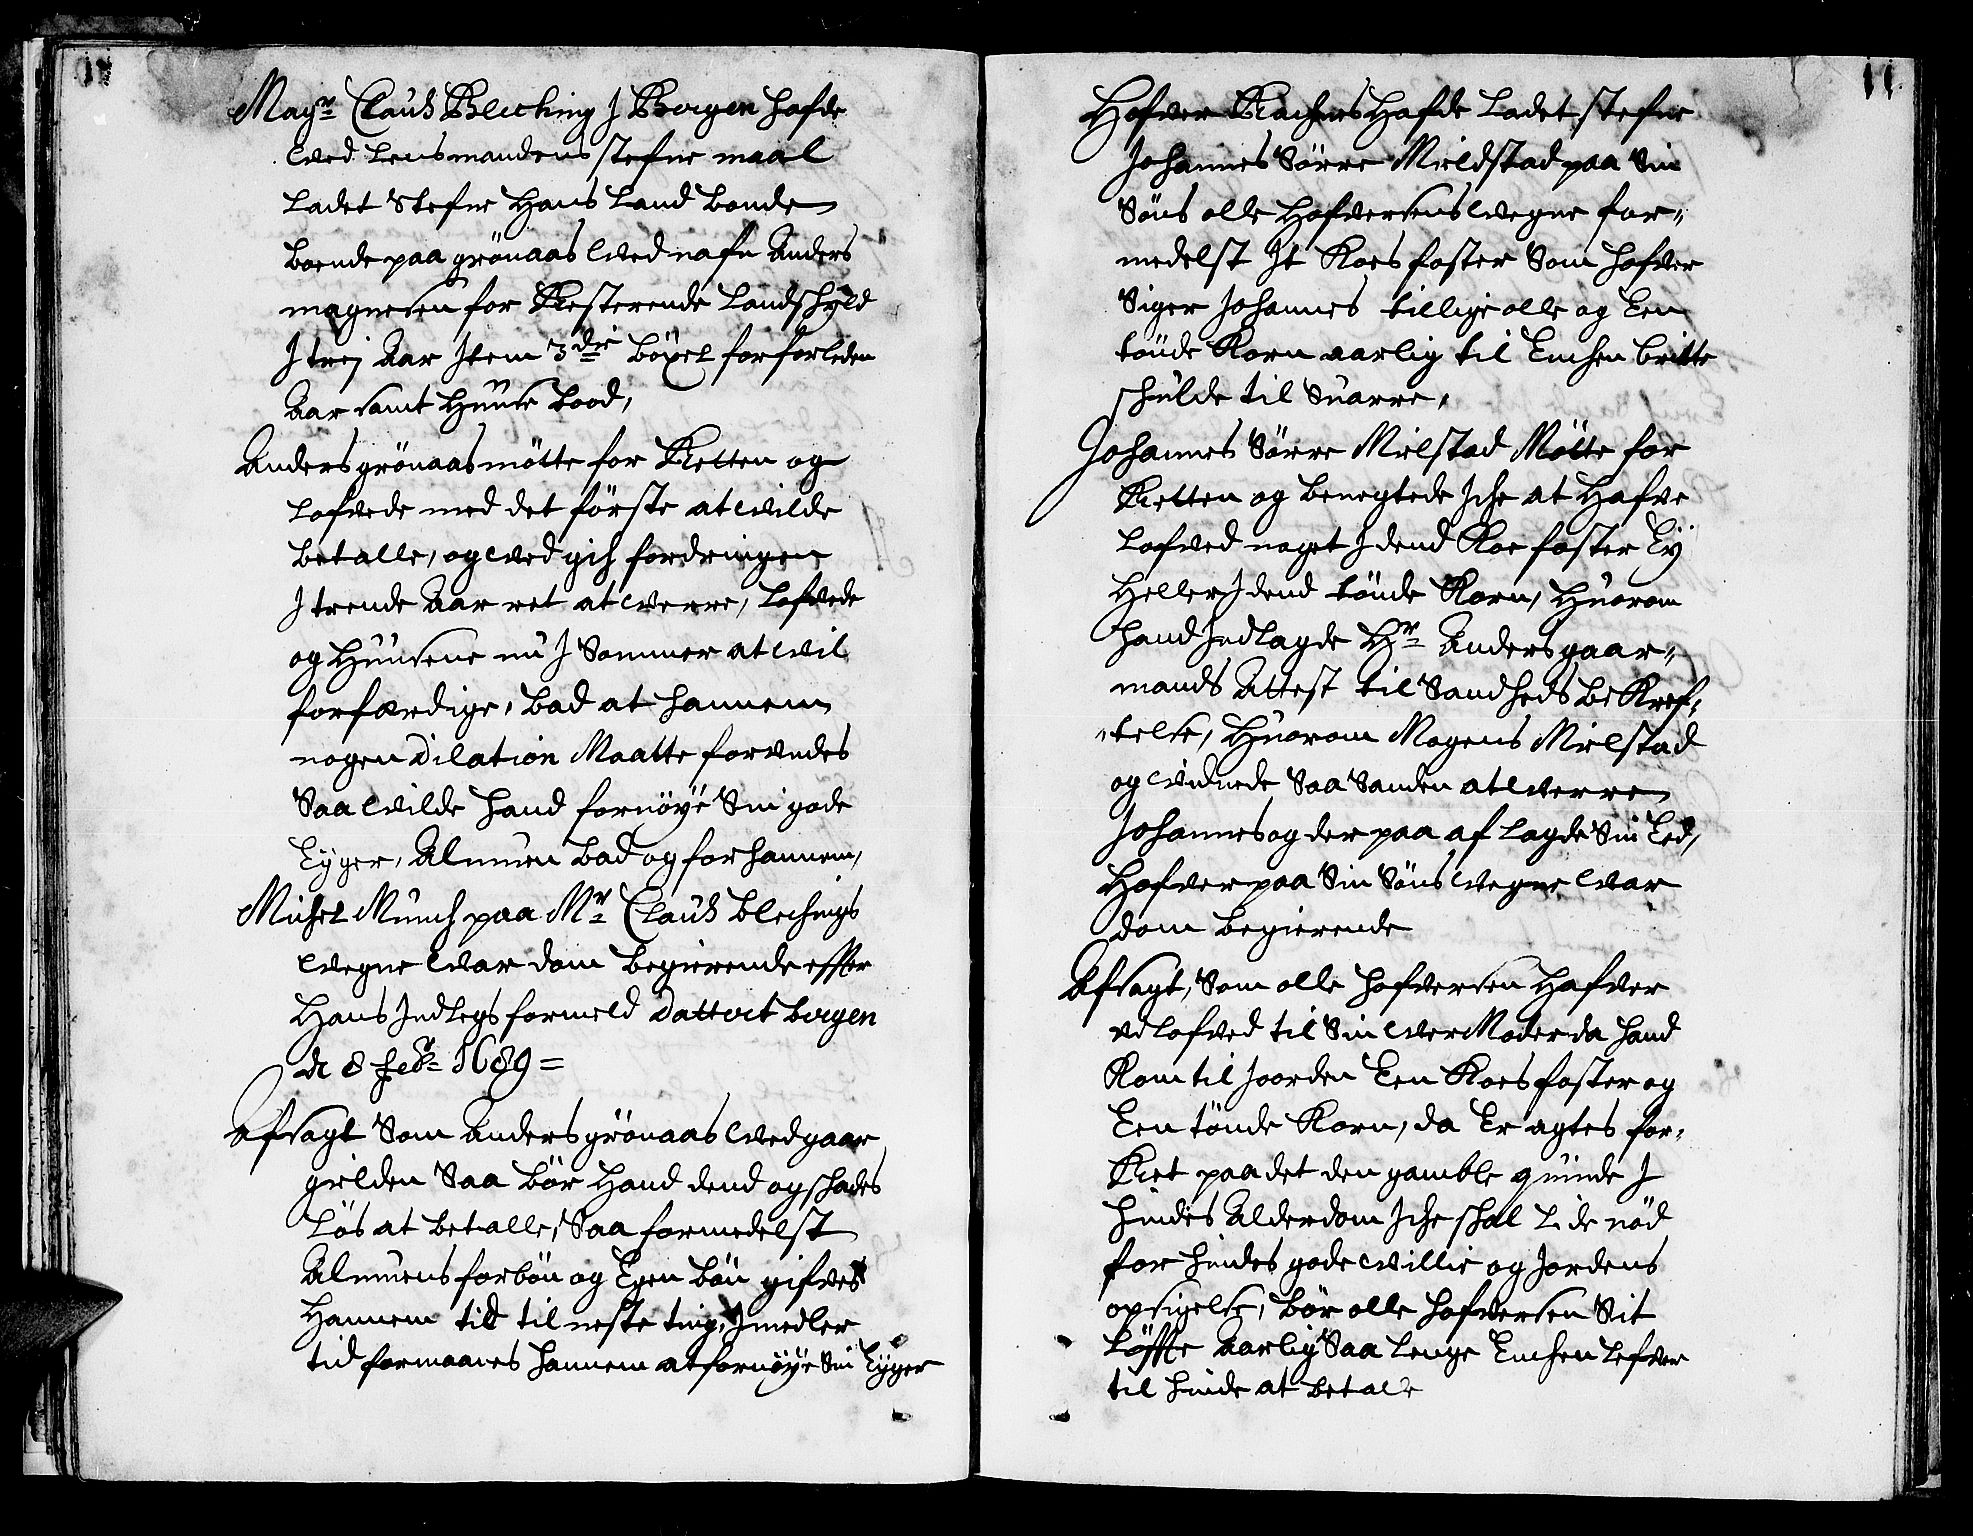 Magr Clauss Blecking J Bergen hafde
wed Lensmandens stefne maal
Ladet Stefne Hans Land Bonde
boende paa grönaas wed nafn Anders
magnesen for Resterende Landschyld
J trej Aar Jtem 3die böxel for forleden
Aar samt Huuse bood,
Anders grönaas mötte for Retten og
Lofvede med det förste at wilde
betalle, og wed gich fordringen
J trende Aar ret at werre, Lofvede
og Huusene nu J Sommer at wil
forfærdige, bad at hannem
nogen Dilation Maatte forundes
Saa wilde hand fornöye Sin gode
Eyger, Almuen bad og for hannem,
Michel Munch paa Mr Clauss Blechings
wegne war dom begierende effter
Hans Jndlegs formeld Datterit bergen
de 8 febr 1689 =
Afsagt Som Anders grönaas wedgaar
gielden Saa bör Hand dend og schades
Lös at betalle, Saa formedelst
Almuens forbön og Egen bön gifves
Hannem tid til neste ting, Jmedler
tid formaanes hannem at fornöye Sin Eyger
11
Hafver Hafde Ladet stefne
Johannes Sörre Mieldstad paa Sin
Söns olle Hafversens wegne for,,
medelst Jt Koes foster Som hafver
Siger Johannes tillige olle og Een
tönde Korn aarlig til Enchen britte
schulde til Suarre,
Johannes Sörre Mielstad Mötte for
Retten og benegtede Jche at Hafve
Lofved noget J dend Koe foster Ey
Heller J dend tönde Korn, Huorom
hand Jndlagde Hr Anders gaar,,
mands Attest til Sandheds bekref,,
,,telse, Huorom Mogens Mielstad
og widnede Saa Sanden at werre
Johannes og der paa af lagde Sin Eed,
Hafver paa Sin Söns wegne war
dom begierende
Afsagt, Som olle Hafversen Hafver
udlofved til Sin wer Moder da hand
Kom til Joorden Een Koes foster og
Een tönde Korn, da Er agtes for,,
Ret paa det den gamble quinde J
hindes Alderdom Jche schal Lide nöd
for hindes gode willie og Jordens
opsigelse, bör olle Hafversen Sit
Löffte Aarlig Saa Lenge Enchen Lefver
til hinde at betale